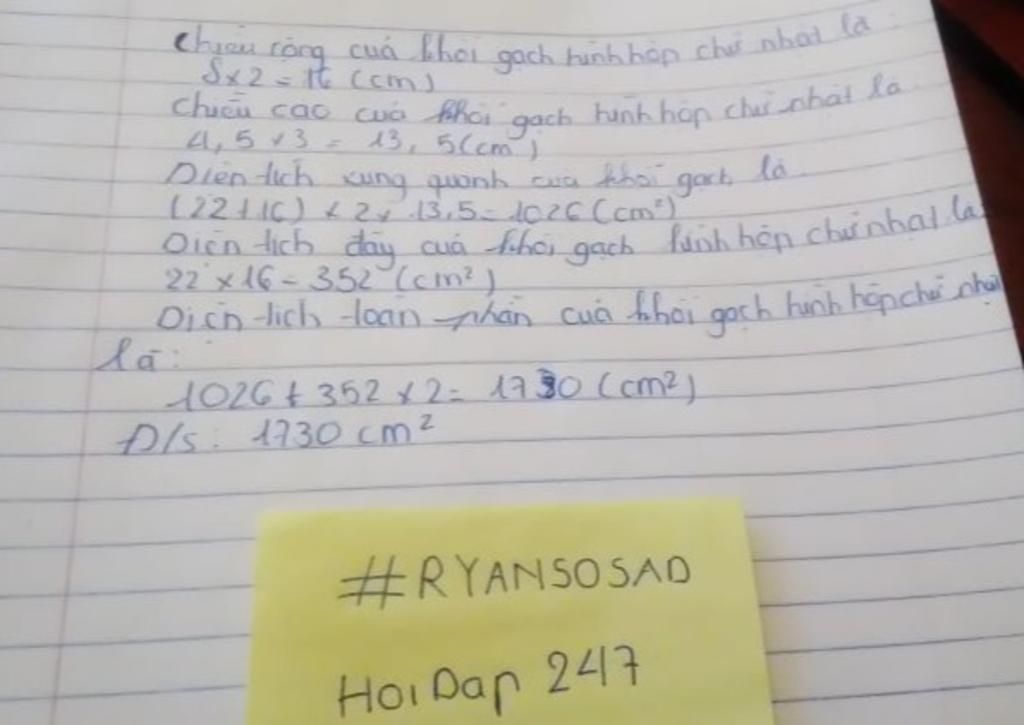 Chiều rộng của khối gạch hình hộp chữ nhật là:
8 x 2 = 16 (cm)
Chiều cao của khối gạch hình hộp chữ nhật là
4,5 x 3 = 13,5 (cm)
Diện tích xung quanh của khối gạch là
(22 + 16) x 2 x 13,5 = 1026 (cm²)
Diện tích đáy của khối gạch hình hộp chữ nhật là
22 x 16 = 352 (cm²)
Diện tích toàn phần của khối gạch hình hộp chữ nhật
là:
1026 + 352 x 2 = 1730 (cm²)
Đ/s: 1730 cm²
#RYANSOSAD
HoiDap 247